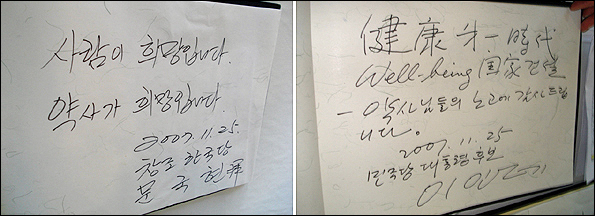 사람이 희망입니다.
약사가 희망입니다.
2007. 11. 25.
창조한국당
문국현
健康 第一 時代
Well-being 国家 건설
- 약사님들의 노고에 감사드립
니다.
2007. 11. 25
민주당 대통령 후보
이인제